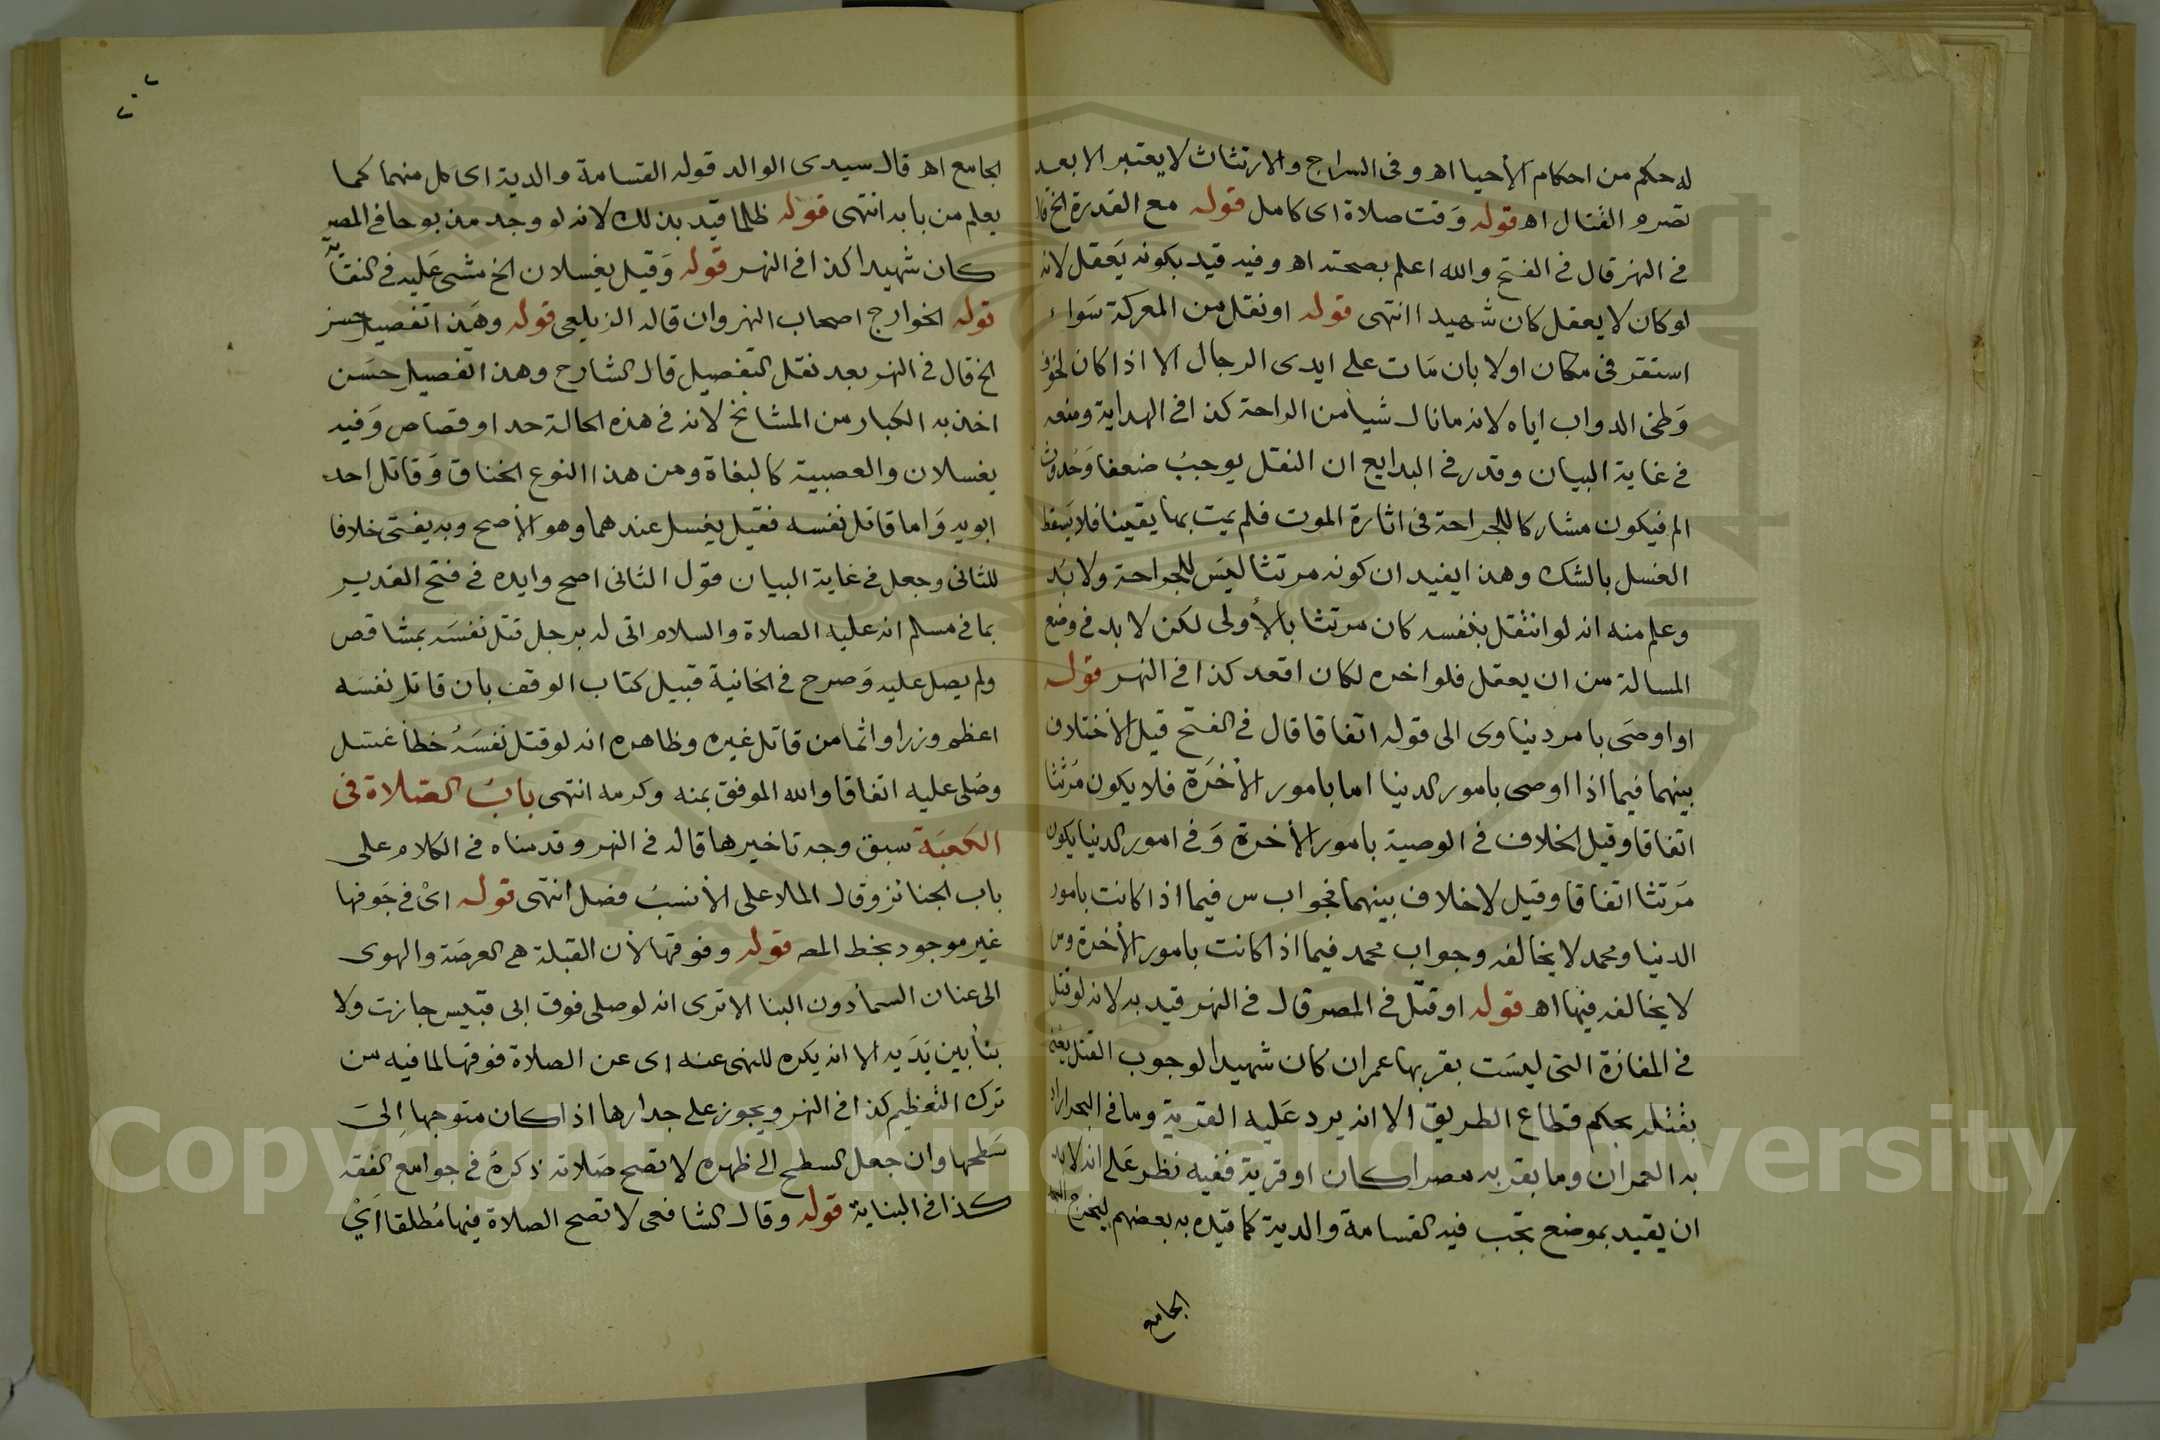 له حكم من احكام الأحيا اه وفى السراج والارتثاث لا يعتبر الا بعد
تصرم القتال اه قوله وقت صلاة اى كامل قوله مع القدرة الخ قال
فى النهر قال فى الفتح والله اعلم بصحته اه وفيه قيد بكونه يعقل لانه
لو كان لا يعقل كان شهيدا انتهى قوله او نقل من المعركة سواء
استقر فى مكان او لا بان مات على ايدى الرجال الا اذا كان لخوف
وطئ الدواب اياه لانه ما نال شيا من الراحة كذا فى الهداية ومنعه
فى غاية البيان وقدر فى البدايع ان النقل يوجب ضعفا وحدوث
الم فيكون مشاركا للجراحة فى اثارة الموت فلم يمت بها يقينا فلا يسقط
الغسل بالشك وهذا يفيد ان كونه مرتثا ليس للجراحة ولا بد
وعلم منه انه لو انتقل بنفسه كان مرتثا بالأولى لكن لا بد فى وضع
المسالة من ان يعقل فلو اخره لكان اقعد كذا فى النهر قوله
او اوصى بامر دنياوى الى قوله اتفاقا قال فى الفتح قيل الأختلاف
بينهما فيما اذا اوصى بامور الدنيا اما بامور الأخرة فلا يكون مرتثا
اتفاقا وقيل الخلاف فى الوصية بامور الأخرة وفى امور الدنيا يكون
مرتثا اتفاقا وقيل لا خلاف بينهما فجواب س فيما اذا كانت بامور
الدنيا ومحمد لا يخالفه وجواب محمد فيما اذا كانت بامور الأخرة وس
لا يخالفه فيها اه قوله او قتل فى المصر قال فى النهر قيد به لانه لو قتل
فى المفازة التى ليست بقربها عمران كان شهيدا لوجوب القتل يعنى
بقتله بحكم قطاع الطريق الا انه يرد عليه القرية وما فى البحر اراد
به العمران وما بقربه مصرا كان او قرية ففيه نظر على انه لا بد
ان يقيد بموضع تجب فيه القسامة والدية كما قيده به بعضهم ليخرج
الجامع
٢٠٢
الجامع اه قال سيدى الوالد قوله القسامة والدية اى كل منهما كما
يعلم من بابه انتهى قوله ظلما قيد بذلك لانه لو وجد مذبوحا فى المصر
كان شهيدا كذا فى النهر قوله وقيل يغسلان الخ مشى عليه فى النقاية
قوله الخوارج اصحاب النهروان قاله الزيلعى قوله وهذا تفصيل حسن
الخ قال فى النهر بعد نقل التفصيل قال الشارح وهذا تفصيل حسن
اخذ به الكبار من المشائخ لانه فى هذه الحالة حد او قصاص وفيه
يغسلان والعصبية كالبغاة ومن هذا النوع الخناق وقاتل احد
ابويه واما قاتل نفسه فقيل يغسل عندهما وهو الأصح وبه يفتى خلافا
للثانى وجعل فى غاية البيان قول الثانى اصح وايده فى فتح القدير
بما فى مسلم انه عليه الصلاة والسلام اتى له برجل قتل نفسه بمشاقص
ولم يصل عليه وصرح فى الخانية قبيل كتاب الوقف بان قاتل نفسه
اعظم وزرا واثما من قاتل غيره وظاهره انه لو قتل نفسه خطأ غسل
وصلى عليه اتفاقا والله الموفق بمنه وكرمه انتهى باب الصلاة فى
الكعبة سبق وجه تاخيرها قاله فى النهر وقدمناه فى الكلام على
باب الجنائز وقال الملا على الأنسب فصل انتهى قوله اى فى جوفها
غير موجود بخط المصـ قوله وفوقها لأن القبلة هى العرصة والهوى
الى عنان السمأ دون البنا الا ترى انه لو صلى فوق ابى قبيس جازت ولا
بنأ بين يديه الا انه يكره للنهى عنه اى عن الصلاة فوقها لما فيه من
ترك التعظيم كذا فى النهر ويجوز على جدارها اذا كان متوجها الى
سطحها وان جعل السطح الى ظهره لا تصح صلاته ذكره فى جوامع الفقه
كذا فى البناية قوله وقال الشافعى لا تصح الصلاة فيها مطلقا اى
Copyright © King Saud University